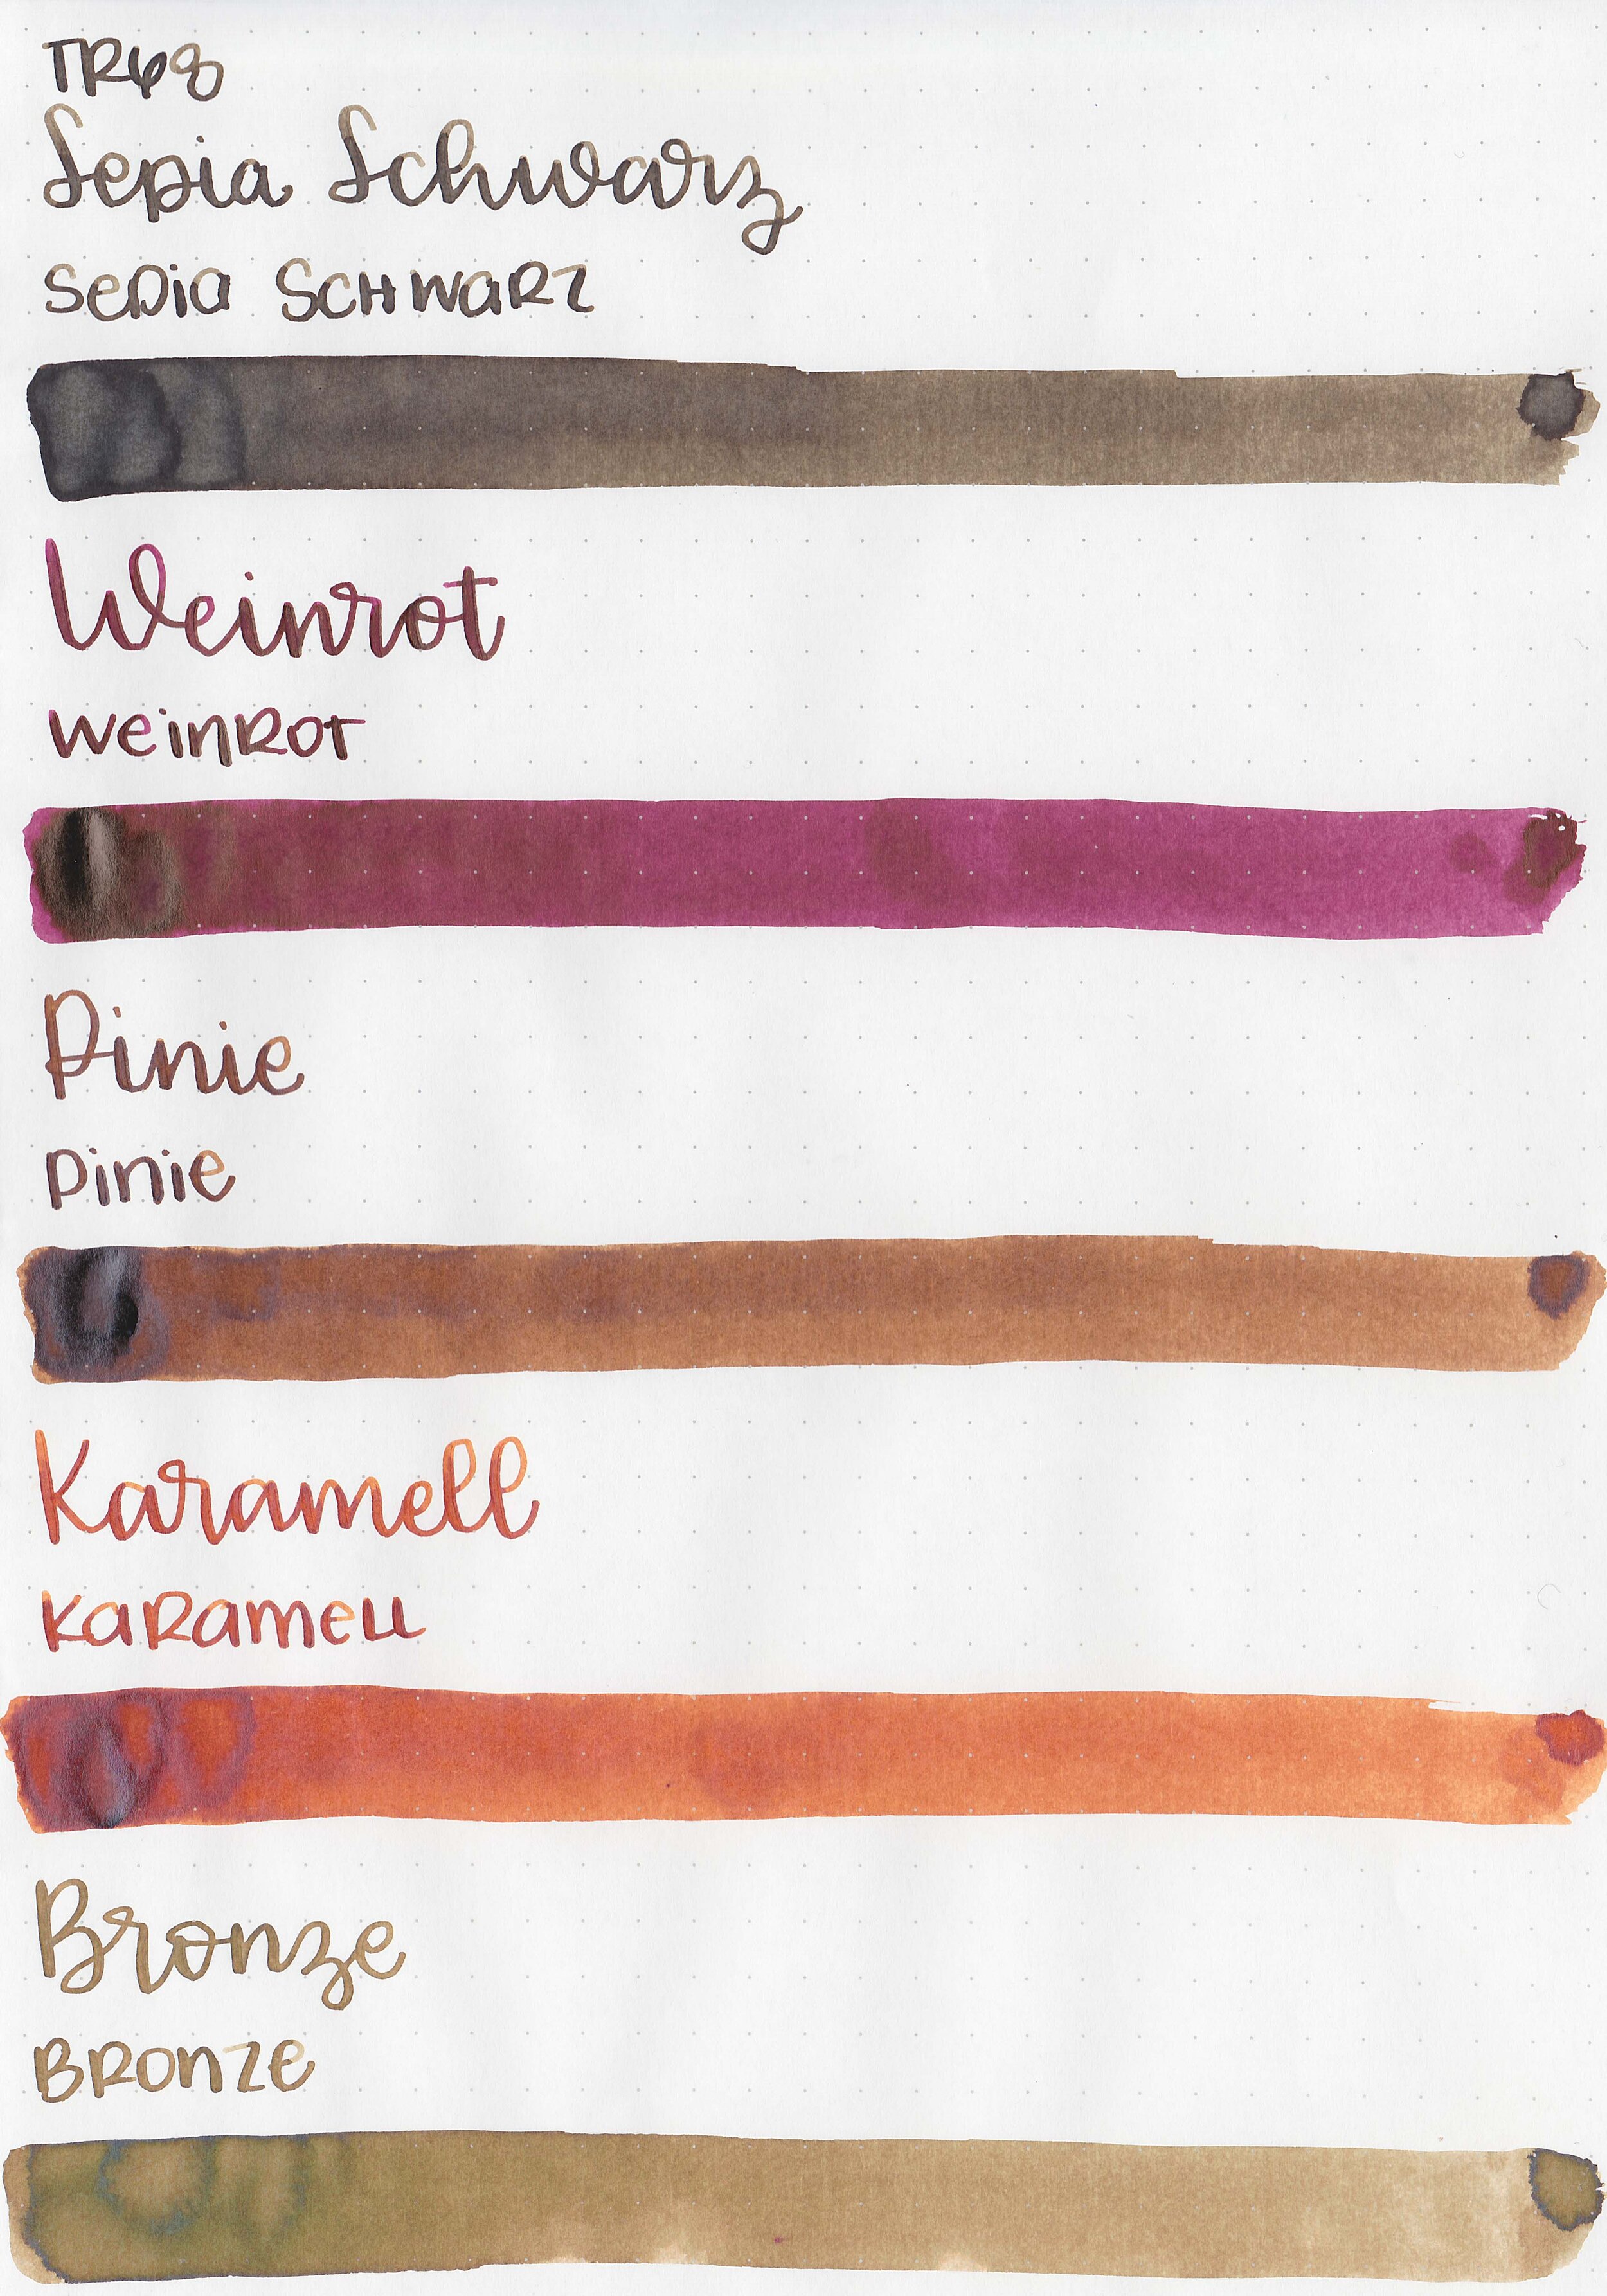 TR68
Sepia Schwarz
Sepia Schwarz
Weinrot
Weinrot
Pinie
Pinie
Karamell
Karamell
Bronze
Bronze